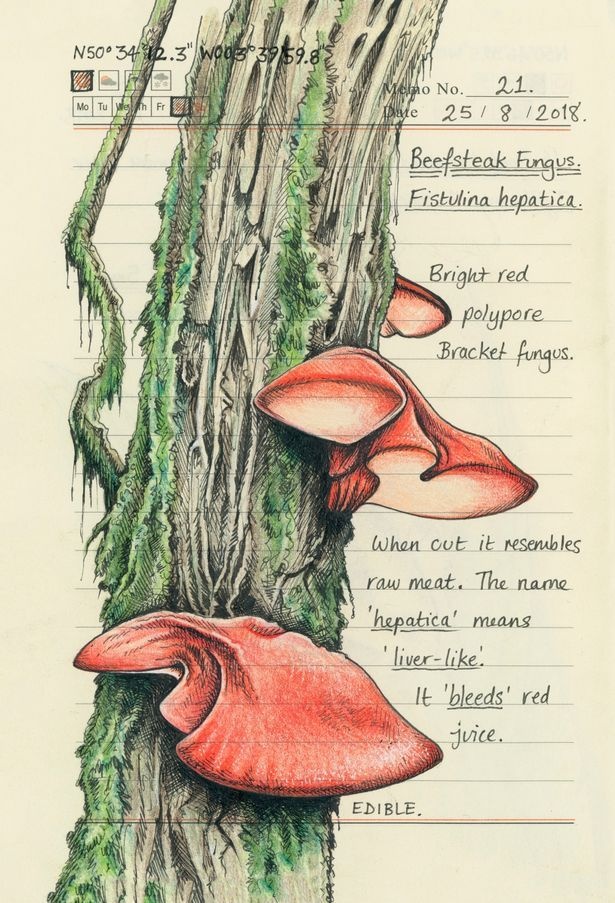 N50° 34' 12.3" W003° 39' 59.8"
Memo No. 21.
Mo Tu We Th Fr
Date 25 / 8 / 2018.
Beefsteak Fungus.
Fistulina hepatica.
Bright red
polypore
Bracket fungus.
When cut it resembles
raw meat. The name
'hepatica' means
'liver-like'.
It 'bleeds' red
juice.
EDIBLE.